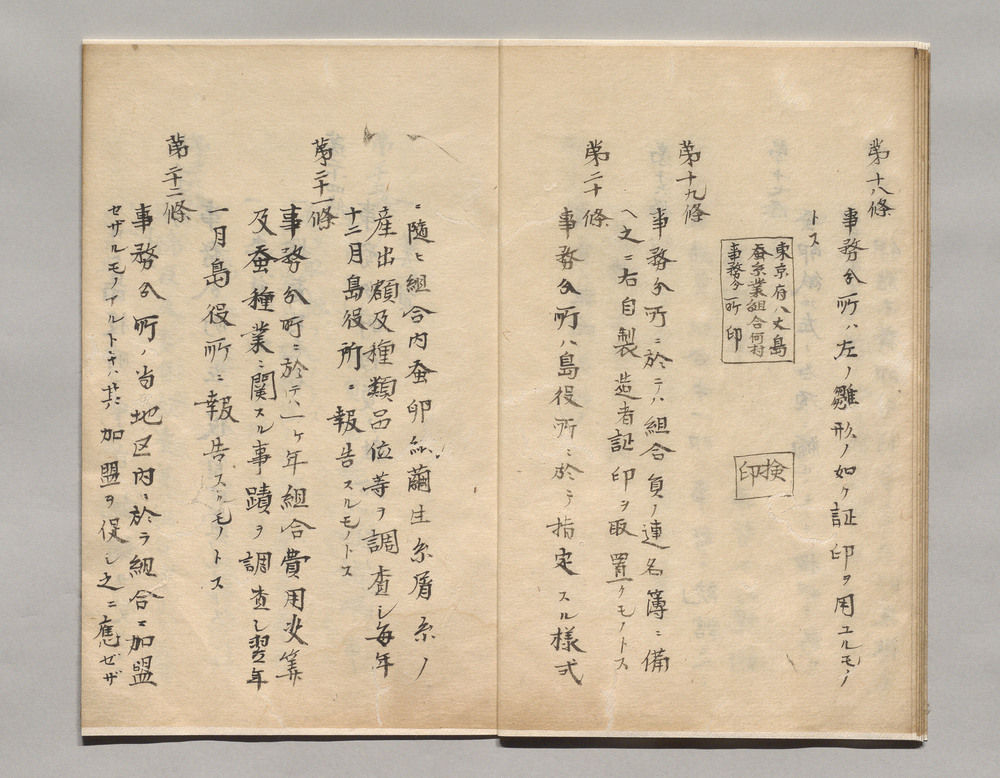 第十八條
事務分所ハ左ノ雛形ノ如ク証印ヲ用ユルモノ
トス
東京府八丈島
蚕糸業組合何村
事務分所印
検印
第十九條
事務分所ニ於テハ組合員ノ連名簿ニ備
ヘ之ニ右自製造者証印ヲ取置クモノトス
第二十條
事務分所ハ島役所ニ於テ指定スル様式
ニ随ヒ組合内蚕卵紙繭生糸屑糸ノ
産出額及種類品位等ヲ調査シ毎年
十二月島役所ニ報告スルモノトス
第二十一條
事務分所ニ於テハ一ヶ年組合費用决算
及蚕種業ニ関スル事蹟ヲ調査シ翌年
一月島役所ニ報告スルモノトス
第二十二條
事務分所ノ当地区内ニ於テ組合ニ加盟
セザルモノアルトキハ其加盟ヲ促シ之ニ應ゼザ